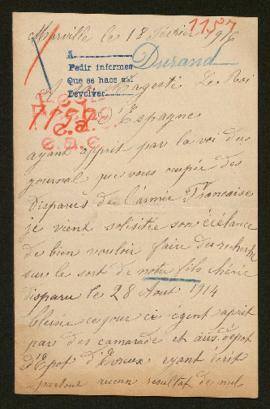 Marville le 18 Février 1916
1157
A
Pedir informes
Que se hace
Devolver
Durand
Sa Magesté Le Roi
d'Espagne
ayant apprit par la voi du
journal que vous occupée des
disparus de l'armée Française
je vient solisitée son
de bien vouloir faire du recherche
sur le sort de notre fils chérie
disparu le 28 Aout 1914
blessé ce jour ce apprit
par des camarade et
Dépot d'Evreux ayant écrit
partout aucun resultat de nul